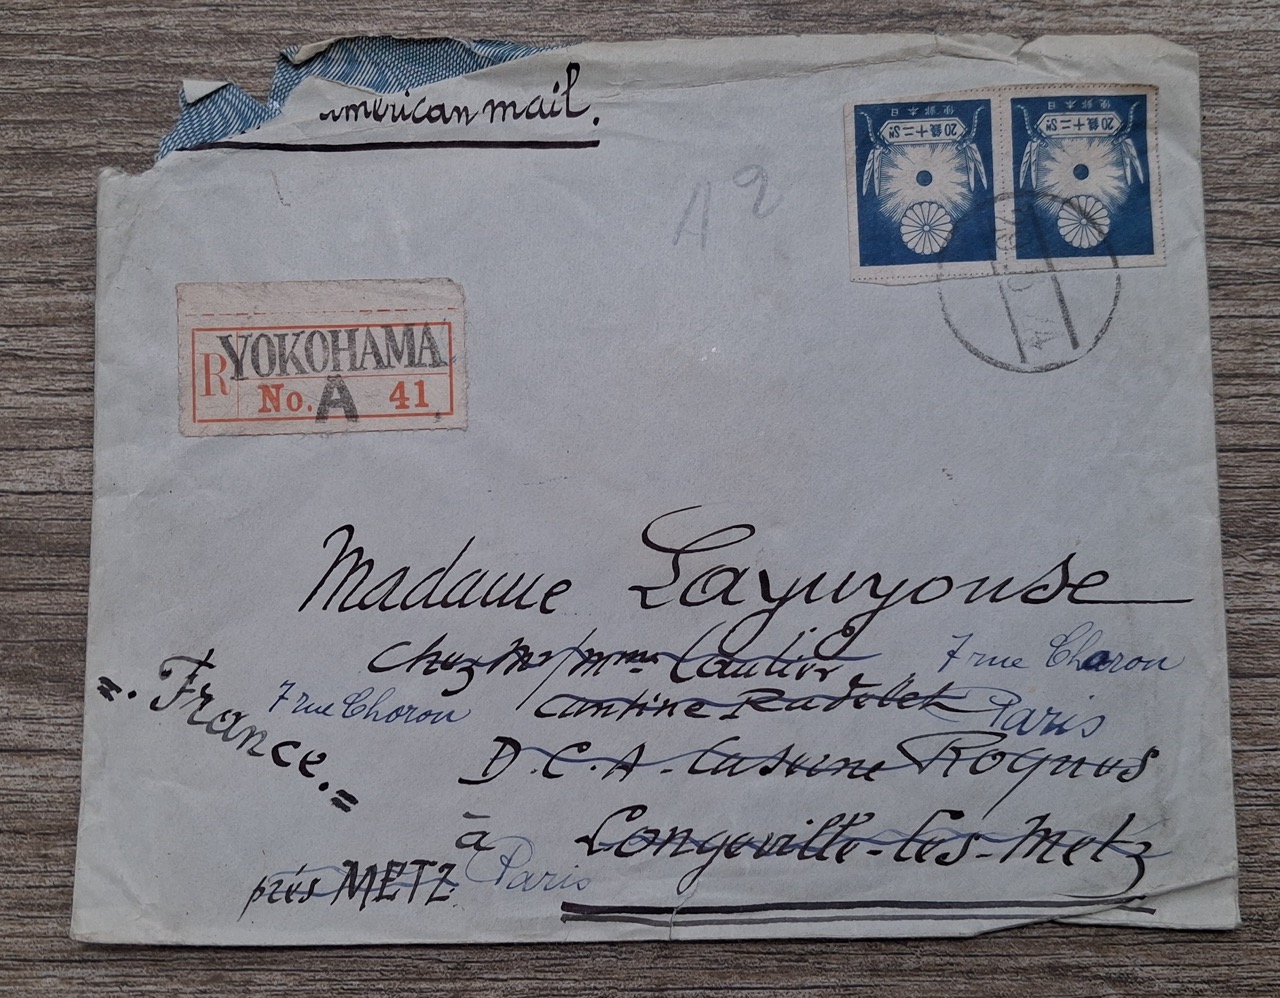 american mail.
日本郵便
20銭十二Sn
日本郵便
20銭十二Sn
A 2
R YOKOHAMA
No. A 41
Madame Layuyouse
chez Mr/mme Caulier
7 rue Choron
cantine Radolek
Paris
"France."
7 rue Choron
D.C.A. Caserne Roques
à Longeville-les-Metz
près METZ.
Paris